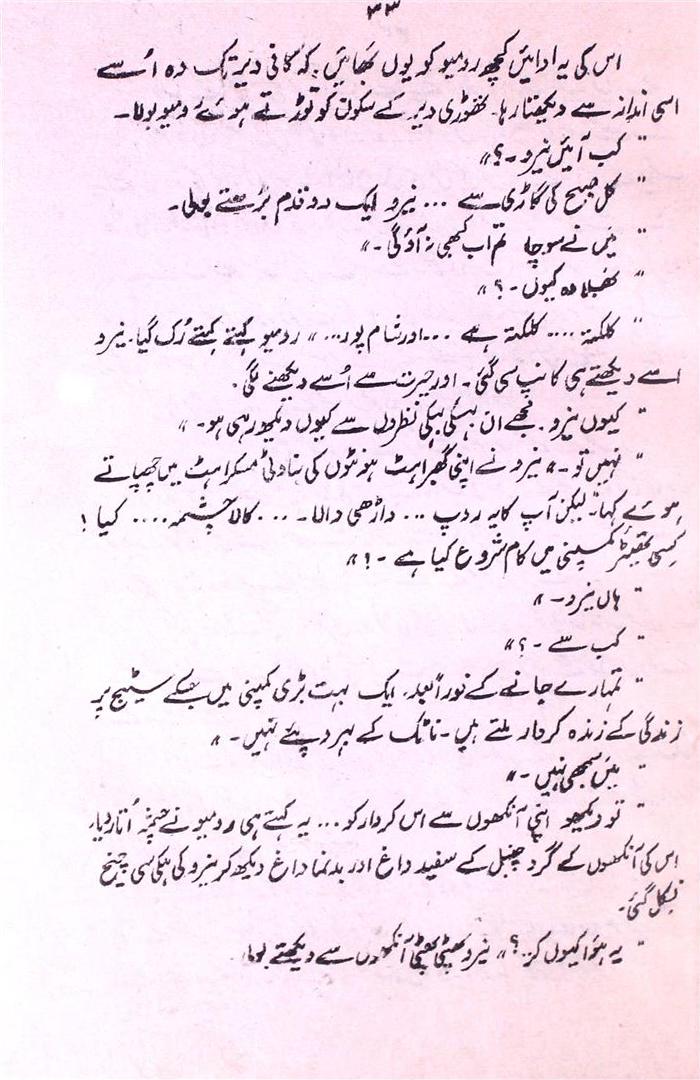 ۳۳
اس کی یہ ادائیں کچھ رومیو کو یوں بھائیں۔ کہ کافی دیر تک وہ اُسے
اسی انداز سے دیکھتا رہا۔ تھوڑی دیر کے سکوت کو توڑتے ہوئے رومیو بولا۔
" کب آئیں نیرو۔؟ "
" کل صبح کی گاڑی سے ... نیرو ایک دو قدم بڑھتے بولی۔
" میں نے سوچا تم اب کبھی نہ آؤ گی۔ "
" بھلا وہ کیوں۔؟ "
" کلکتہ .... کلکتہ ہے ... اور شام پور... " رومیو کہتے کہتے رُک گیا۔ نیرو
اسے دیکھتے ہی کانپ سی گئی۔ اور حیرت سے اُسے دیکھنے لگی۔
" کیوں نیرو۔ مجھے ان بہکی بہکی نظروں سے کیوں دیکھ رہی ہو۔ "
" نہیں تو۔ " نیرو نے اپنی گھبراہٹ ہونٹوں کی بناوٹی مسکراہٹ میں چھپاتے
ہوئے کہا۔ لیکن آپ کا یہ روپ ... داڑھی والا۔ ... کالا چشمہ .... کیا !
کسی تھیٹر کمپنی میں کام شروع کیا ہے۔؟ "
" ہاں نیرو۔ "
" کب سے۔؟ "
" تمہارے جانے کے فوراً بعد۔ ایک بہت بڑی کمپنی میں جسکے سٹیج پر
زندگی کے زندہ کردار ملتے ہیں۔ ناٹک کے بہروپئے نہیں۔ "
" میں سمجھی نہیں۔ "
" تو دیکھو اپنی آنکھوں سے اس کردار کو ... یہ کہتے ہی رومیو نے چشمہ اُتار دیا۔
اس کی آنکھوں کے گرد چنبل کے سفید داغ اور بدنما داغ دیکھ کر نیرو کی ہلکی سی چیخ
نکل گئی۔
" یہ ہوا کیوں کر۔؟ " نیرو پھٹی پھٹی آنکھوں سے دیکھتے بولی۔